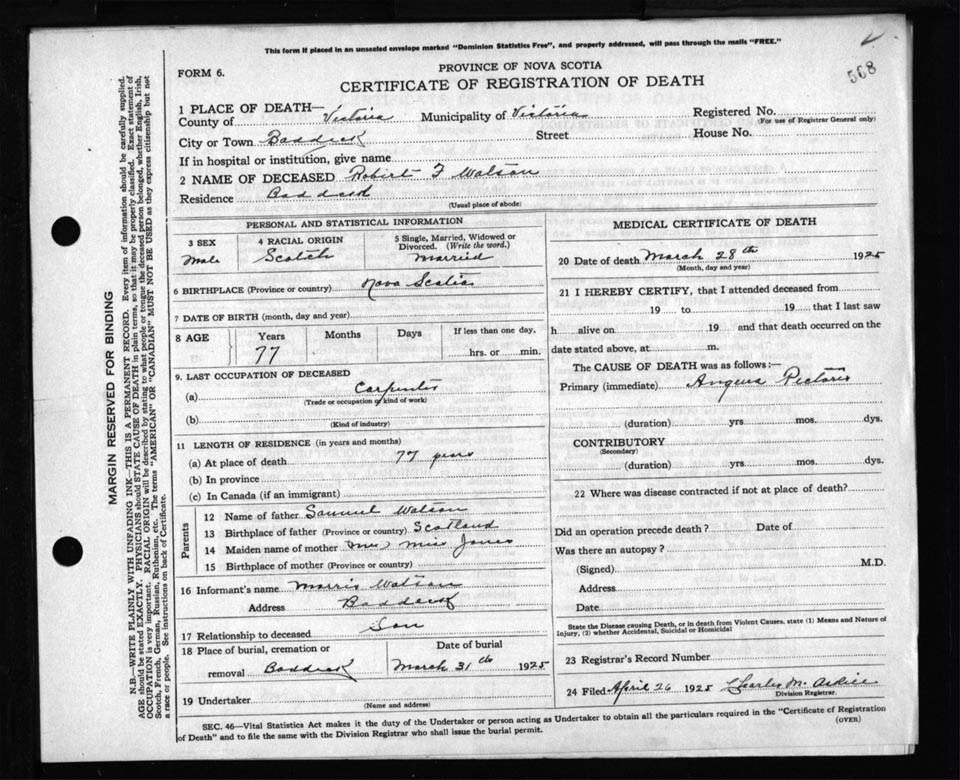 This form if placed in an unsealed envelope marked "Dominion Statistics Free", and properly addressed, will pass through the mails "FREE."
568
FORM 6.
PROVINCE OF NOVA SCOTIA
CERTIFICATE OF REGISTRATION OF DEATH
1 PLACE OF DEATH—
County of Victoria Municipality of Victoria Registered No.
(For use of Registrar General only)
City or Town Baddeck Street House No.
If in hospital or institution, give name
2 NAME OF DECEASED Robert F Watson
Residence Baddeck
(Usual place of abode)
PERSONAL AND STATISTICAL INFORMATION
3 SEX
Male
4 RACIAL ORIGIN
Scotch
5 Single, Married, Widowed or Divorced. (Write the word.)
Married
6 BIRTHPLACE (Province or country) Nova Scotia
7 DATE OF BIRTH (month, day and year)
8 AGE Years Months Days If less than one day,
77 hrs. or min.
9. LAST OCCUPATION OF DECEASED
(a) Carpenter
(Trade or occupation or kind of work)
(b)
(Kind of industry)
11 LENGTH OF RESIDENCE (in years and months)
(a) At place of death 77 years
(b) In province
(c) In Canada (if an immigrant)
Parents
12 Name of father Samuel Watson
13 Birthplace of father (Province or country) Scotland
14 Maiden name of mother Miss Jones
15 Birthplace of mother (Province or country)
16 Informant's name Morris Watson
Address Baddeck
17 Relationship to deceased Son
18 Place of burial, cremation or removal Baddeck
Date of burial
March 31 1925
19 Undertaker
(Name and address)
MEDICAL CERTIFICATE OF DEATH
20 Date of death March 28th 1925
(Month, day and year)
21 I HEREBY CERTIFY, that I attended deceased from
19 to 19 that I last saw
h alive on 19 and that death occurred on the
date stated above, at m.
The CAUSE OF DEATH was as follows:—
Primary (immediate) Angina Pectoris
(duration) yrs mos. dys.
CONTRIBUTORY
(Secondary)
(duration) yrs. mos. dys.
22 Where was disease contracted if not at place of death?
Did an operation precede death? Date of
Was there an autopsy?
(Signed) M.D.
Address
Date
State the Disease causing Death, or in death from Violent Causes, state (1) Means and Nature of
Injury, (2) whether Accidental, Suicidal or Homicidal
23 Registrar's Record Number
24 Filed April 26 1925 Charles M.
Division Registrar.
SEC. 46—Vital Statistics Act makes it the duty of the Undertaker or person acting as Undertaker to obtain all the particulars required in the "Certificate of Registration
of Death" and to file the same with the Division Registrar who shall issue the burial permit.
(OVER)
MARGIN RESERVED FOR BINDING
N.B.—WRITE PLAINLY WITH UNFADING INK—THIS IS A PERMANENT RECORD. Every item of information should be carefully supplied.
AGE should be stated EXACTLY. PHYSICIANS should STATE CAUSE OF DEATH in plain terms, so that it may be properly classified. Exact statement of
OCCUPATION is very important. RACIAL ORIGIN will be described by stating to what people or tongue the deceased person belonged, whether English, Irish,
Scotch, French, German, Russian, Ruthenian, etc. The terms "AMERICAN" or "CANADIAN" MUST NOT BE USED as they express citizenship but not
a race or people. See instructions on back of Certificate.